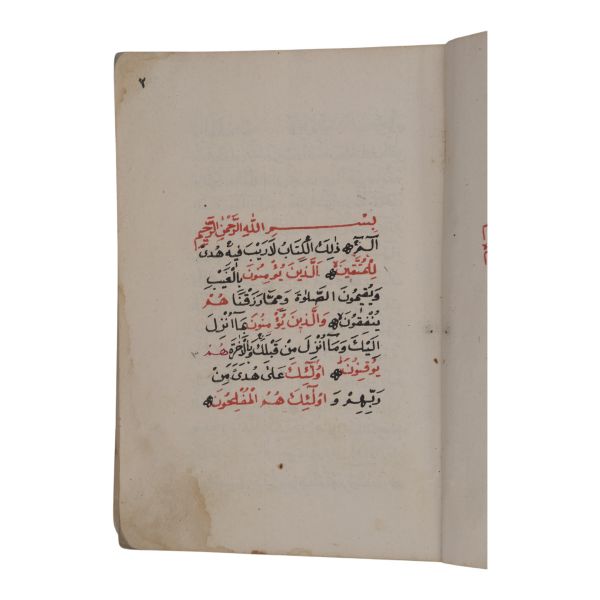 ٢
بِسْمِ اللهِ الرَّحْمٰنِ الرَّحِيمِ
الٓمٓ ذٰلِكَ الْكِتَابُ لَا رَيْبَ فِيهِ هُدًى
لِلْمُتَّقِينَ الَّذِينَ يُؤْمِنُونَ بِالْغَيْبِ
وَيُقِيمُونَ الصَّلٰوةَ وَمِمَّا رَزَقْنَا هُمْ
يُنْفِقُونَ وَالَّذِينَ يُؤْمِنُونَ بِمَا أُنْزِلَ
اِلَيْكَ وَمَا أُنْزِلَ مِنْ قَبْلِكَ وَبِالْاٰخِرَةِ هُمْ
يُوقِنُونَ اُولٰٓئِكَ عَلٰى هُدًى مِنْ
رَبِّهِمْ وَ اُولٰٓئِكَ هُمُ الْمُفْلِحُونَ